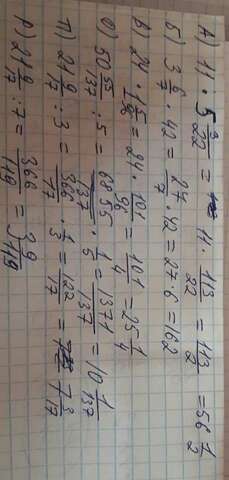 А) 11 · 5 3/22 = 11 · 113/22 = 113/2 = 56 1/2
Б) 3 6/7 · 42 = 27/7 · 42 = 27 · 6 = 162
в) 24 · 1 5/96 = 24 · 101/96 = 101/4 = 25 1/4
о) 50 55/137 : 5 = 6855/137 · 1/5 = 1371/137 = 10 1/137
п) 21 9/17 : 3 = 366/17 · 1/3 = 122/17 = 7 3/17
р) 21 9/17 : 7 = 366/119 = 3 9/119